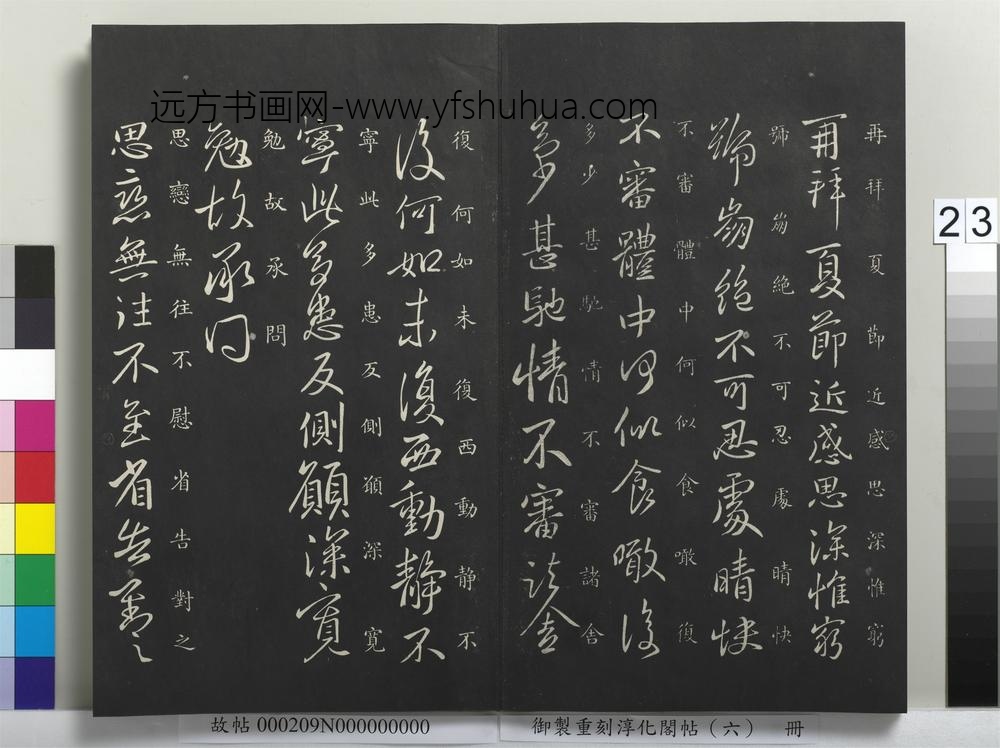 再拜夏節近感思深惟窮
再拜夏節近感思深惟窮
號崩絕不可忍處晴快
號崩絕不可忍處晴快
不審體中何似食噉復
不審體中何似食噉復
多少甚馳情不審諸舍
多少甚馳情不審諸舍
復何如未復西動靜不
復何如未復西動靜不
寧此多患反側願深寬
寧此多患反側願深寬
勉故承問
勉故承問
思戀無往不慰省告對之
思戀無往不至省告對之
远方书画网-www.yfshuhua.com
23
故帖 000209N000000000
御製重刻淳化閣帖（六） 冊